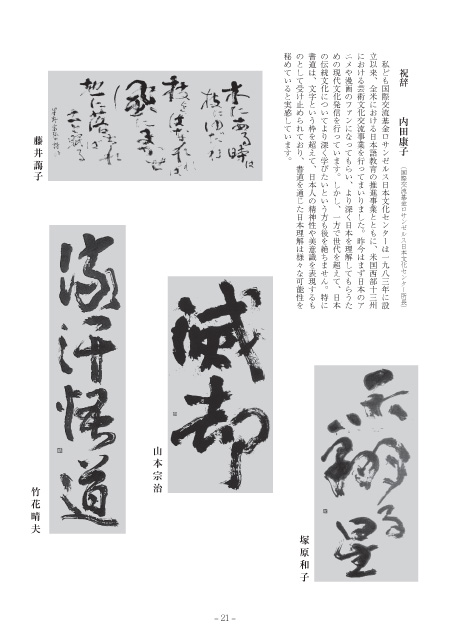 祝辞　内田康子（国際交流基金ロサンゼルス日本文化センター所長）
私ども国際交流基金ロサンゼルス日本文化センターは一九八三年に設
立以来、全米における日本語教育の推進事業とともに、米国西部十三州
における芸術文化交流事業を行ってまいりました。昨今はまず日本のア
ニメや漫画のファンになってもらい、より深く日本を理解してもらうた
めの現代文化発信を行っています。しかし、一方で世代を超えて、日本
の伝統文化についてより深く学びたいという方も後を絶ちません。特に
書道は、文字という枠を超えて、日本人の精神性や美意識を表現するも
のとして受け止められており、書道を通じた日本理解は様々な可能性を
秘めていると実感しています。
木にある時は
枝にゆだね
枝をはなれれば
風にまかせ
地に落ちれば
藤井謌子
滅却
山本宗治
流汗悟道
竹花晴夫
る星
塚原和子
– 21 –